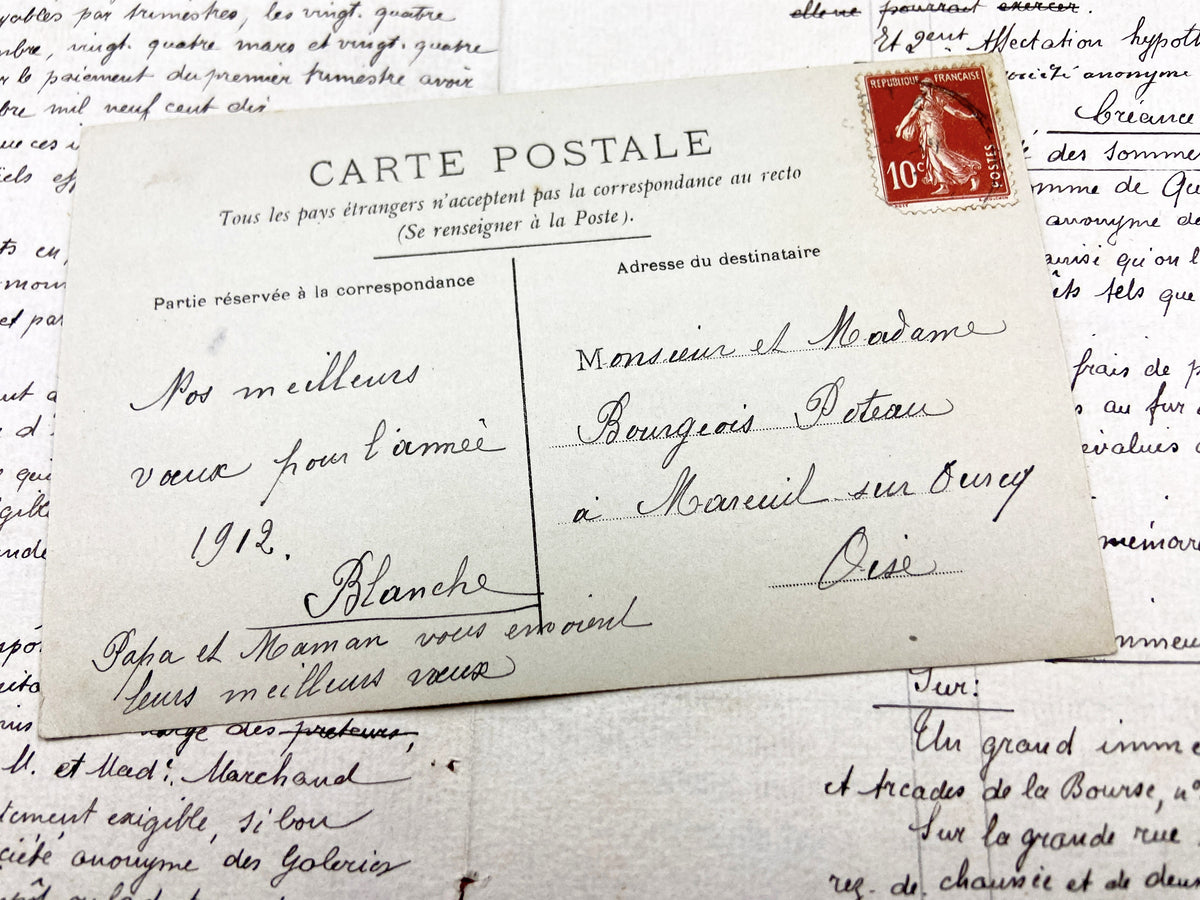 yables par trimestres, les vingt. quatre
mbre, vingt. quatre mars et vingt. quatre
r le paiement du premier trimestre avoir
bre mil neuf cent dix
elle ne pourrait exercer.
Et 2ent Affectation hypoth
société anonyme
Créance
des sommes
omme de Qu
anonyme de
qu'on l
ets tels que
frais de p
s au fur
évalués
mémoire
CARTE POSTALE
Tous les pays étrangers n'acceptent pas la correspondance au recto
(Se renseigner à la Poste).
REPUBLIQUE FRANÇAISE
10c
POSTES
Partie réservée à la correspondance
Nos meilleurs
vœux pour l'année
1912.
Blanche
Papa et Maman vous envoient
leurs meilleurs vœux
Adresse du destinataire
Monsieur et Madame
Bourgeois Poteau
à Mareuil sur Ourcq
Oise
des preteurs,
M. et Made. Marchand
tement exigible, si bon
ciété anonyme des Galeries
Sur:
Un grand imme
et Arcades de la Bourse, n°
Sur la grande rue
rez. de. chaussée et de deux